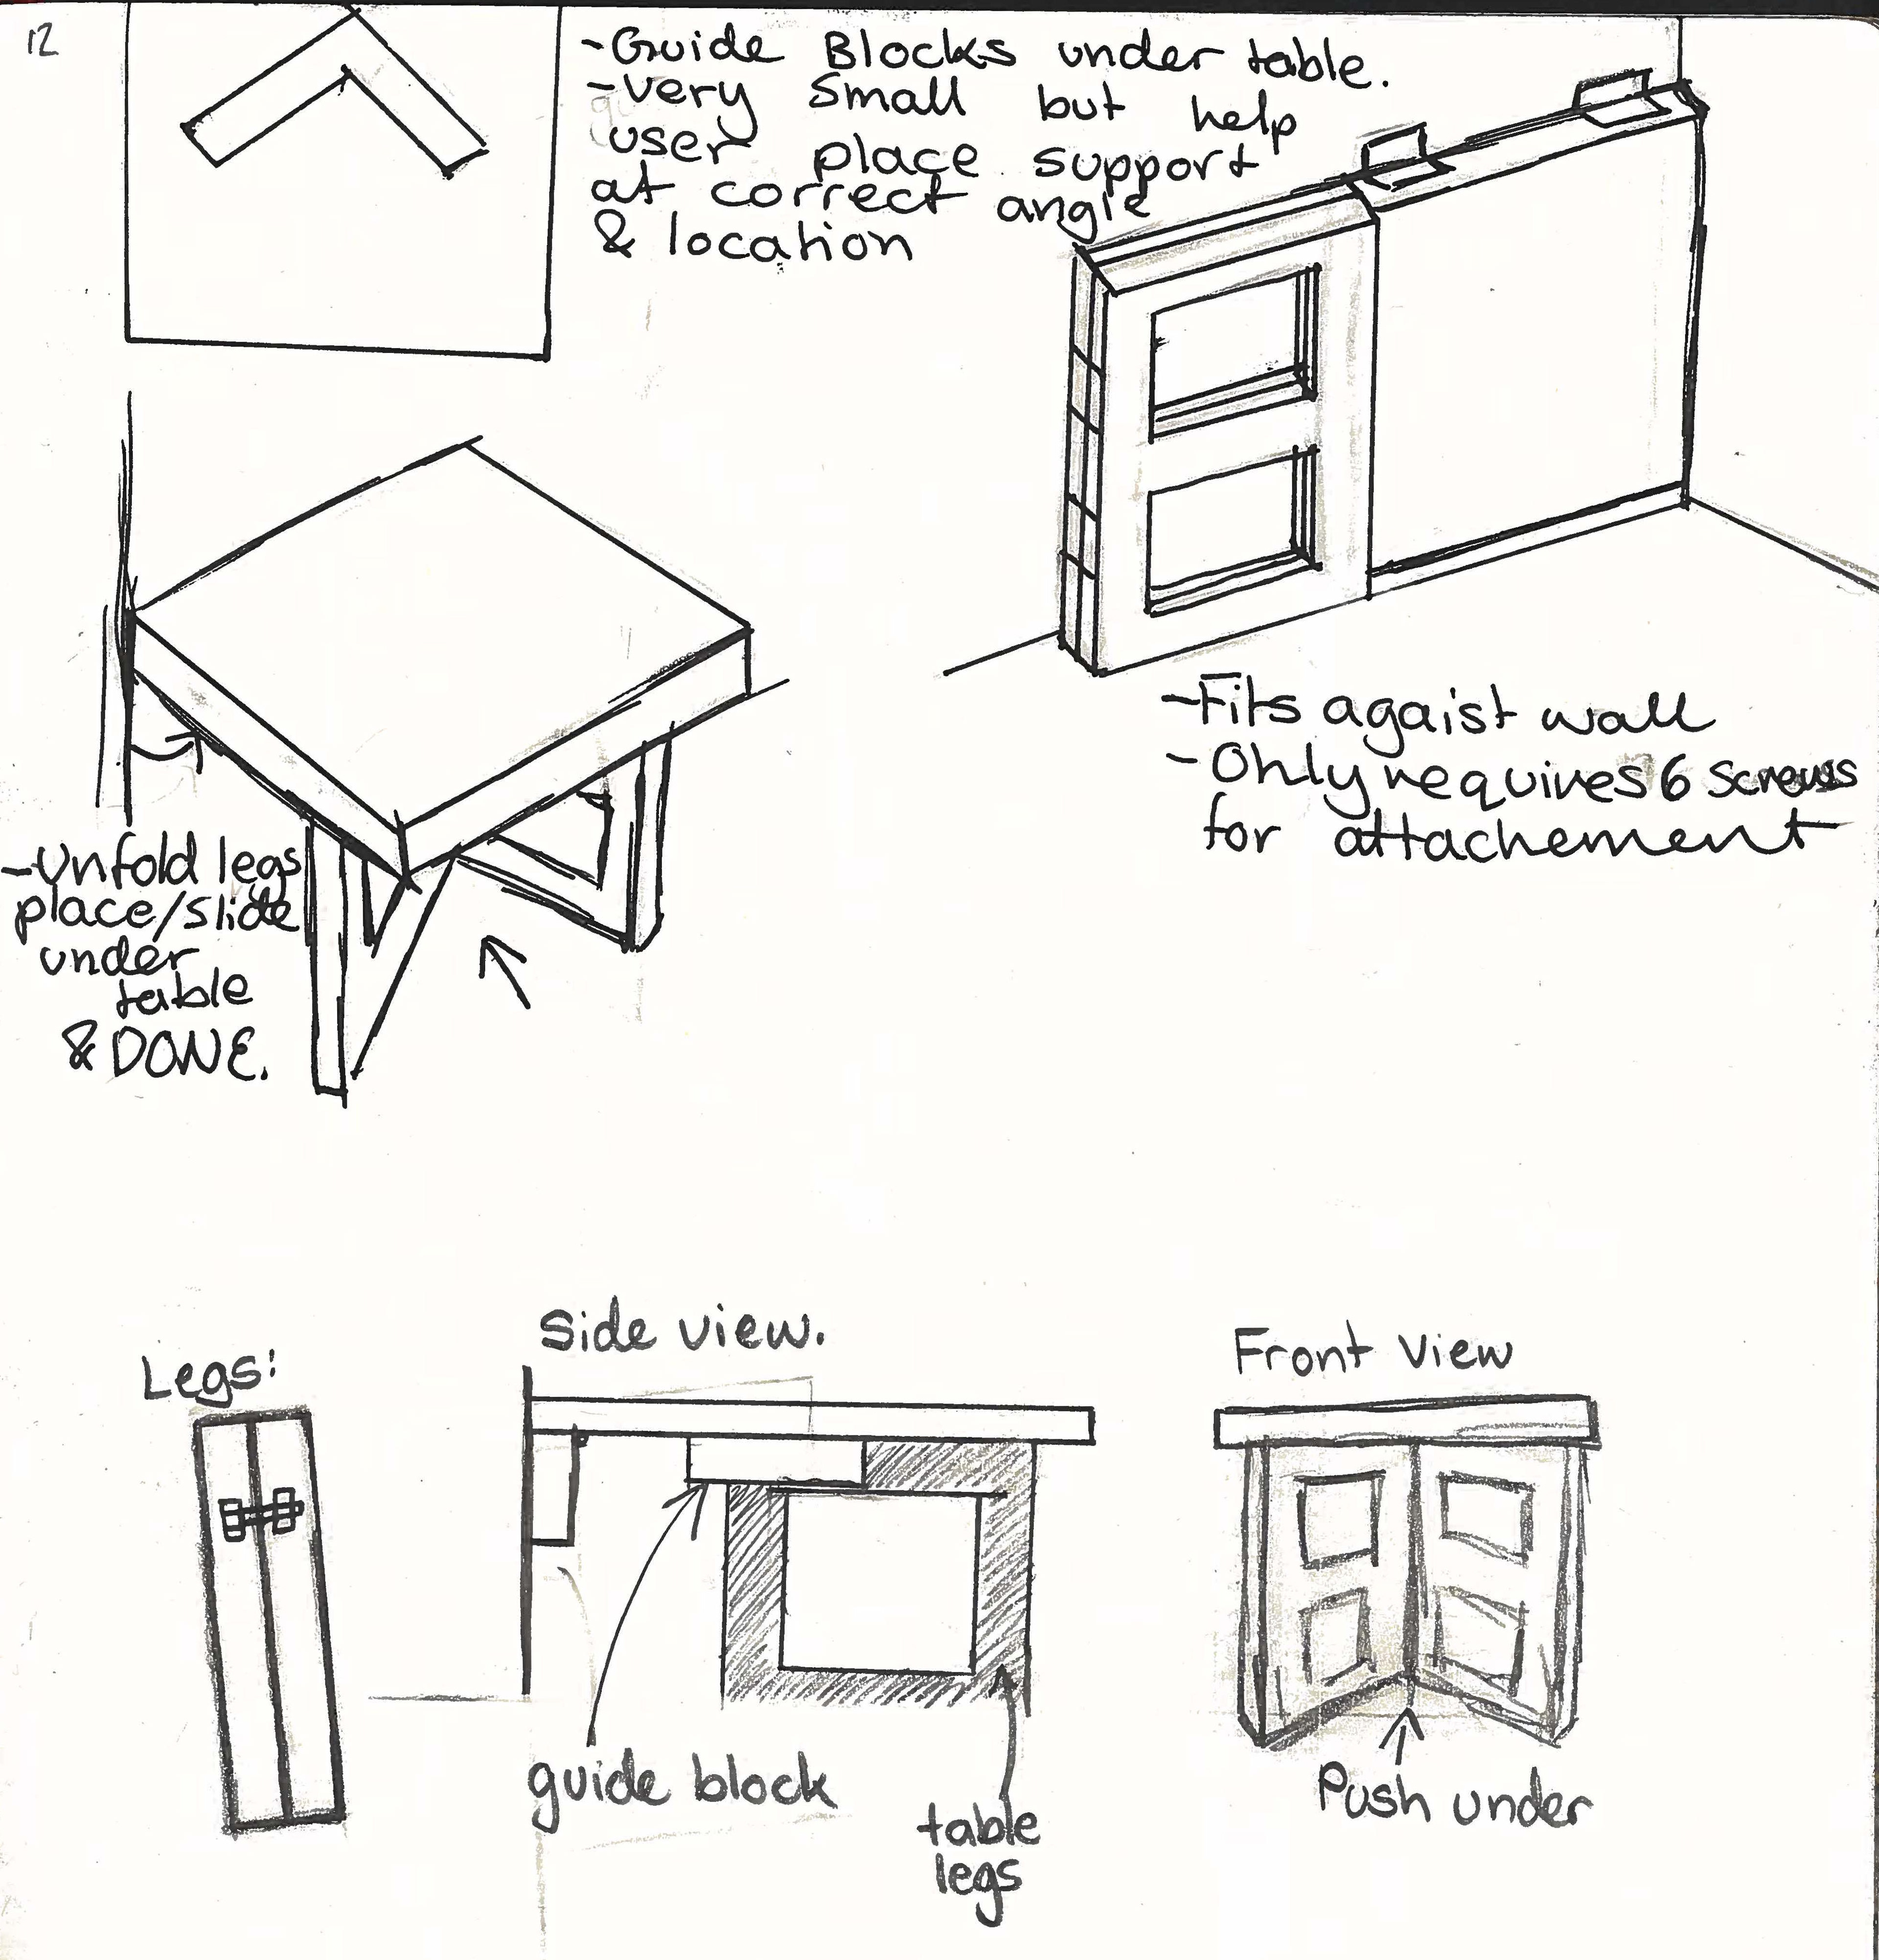 12
-Guide Blocks under table.
-Very small but help
user place support
at correct angle
& location
-Fits agaist wall
-Only requires 6 screws
for attachement
-Unfold legs
place/slide
under
table
& DONE.
Side view.
Front View
Legs:
guide block
table
legs
Push under